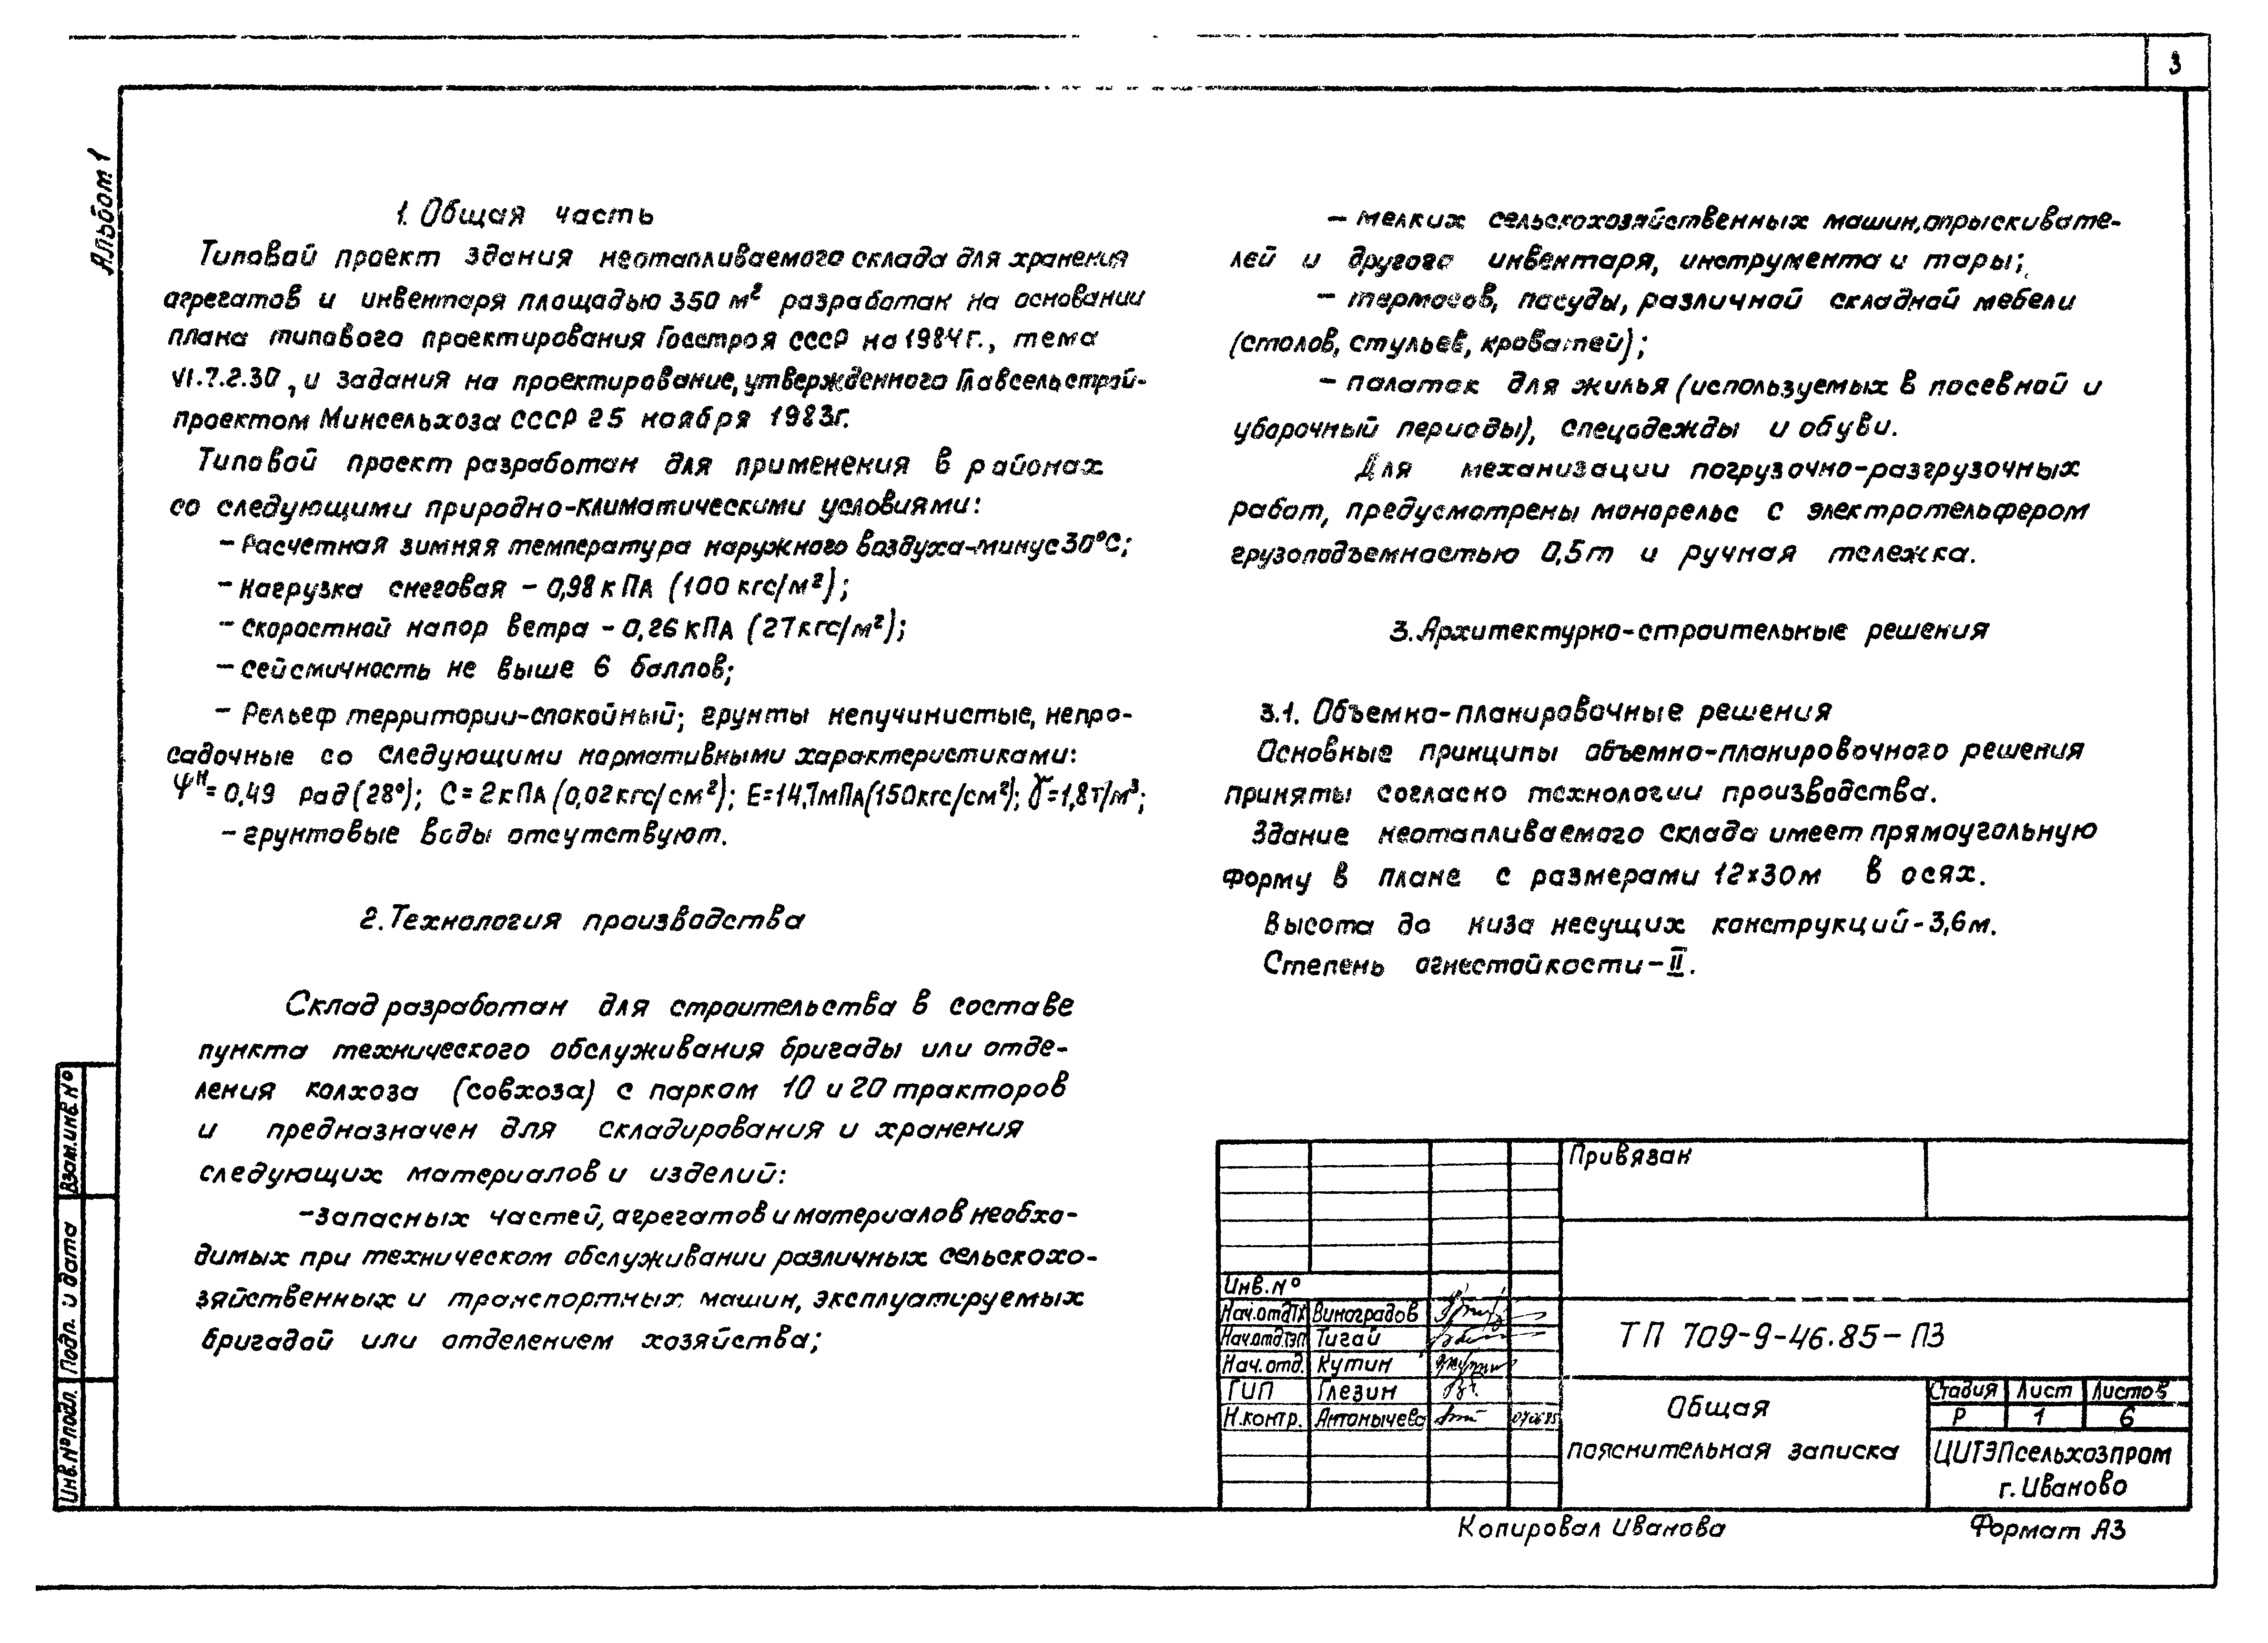 3
Альбом 1
1. Общая часть
Типовой проект здания неотапливаемого склада для хранения
агрегатов и инвентаря площадью 350 м² разработан на основании
плана типового проектирования Госстроя СССР на 1984г., тема
VI.7.2.30, и задания на проектирование, утвержденного Главсельстрой-
проектом Минсельхоза СССР 25 ноября 1983г.
Типовой проект разработан для применения в районах
со следующими природно-климатическими условиями:
- Расчетная зимняя температура наружного воздуха-минус 30°С;
- нагрузка снеговая - 0,98 кПА (100 кгс/м²);
- скоростной напор ветра - 0,26 кПА (27кгс/м²);
- сейсмичность не выше 6 баллов;
- Рельеф территории-спокойный; грунты непучинистые, непро-
садочные со следующими нормативными характеристиками:
φᴴ=0,49 рад (28°); С=2кПА (0,02кгс/см²); Е=14,7мПА(150кгс/см²); γ=1,8т/м³;
- грунтовые воды отсутствуют.
2. Технология производства
Склад разработан для строительства в составе
пункта технического обслуживания бригады или отде-
ления колхоза (совхоза) с парком 10 и 20 тракторов
и предназначен для складирования и хранения
следующих материалов и изделий:
- запасных частей, агрегатов и материалов необхо-
димых при техническом обслуживании различных сельскохо-
зяйственных и транспортных машин, эксплуатируемых
бригадой или отделением хозяйства;
- мелких сельскохозяйственных машин, опрыскивате-
лей и другого инвентаря, инструмента и тары;
- термосов, посуды, различной складной мебели
(столов, стульев, кроватей);
- палаток для жилья (используемых в посевной и
уборочный периоды), спецодежды и обуви.
Для механизации погрузочно-разгрузочных
работ, предусмотрены монорельс с электротельфером
грузоподъемностью 0,5т и ручная тележка.
3. Архитектурно-строительные решения
3.1. Объемно-планировочные решения
Основные принципы объемно-планировочного решения
приняты согласно технологии производства.
Здание неотапливаемого склада имеет прямоугольную
форму в плане с размерами 12×30м в осях.
Высота до низа несущих конструкций-3,6м.
Степень огнестойкости-II.
Взам.инв.№
Подп. и дата
Инв.№ подл.
Привязан
Инв.№
Нач.отд.ТХ Виноградов
Нач.отд.ТЭП Тигай
Нач.отд. Кутин
ГИП Глезин
Н.контр. Антонычева
ТП 709-9-46.85-ПЗ
Общая
пояснительная записка
Стадия Лист Листов
Р 1 6
ЦИТЭПсельхозпром
г. Иваново
Копировал Иванова
Формат А3